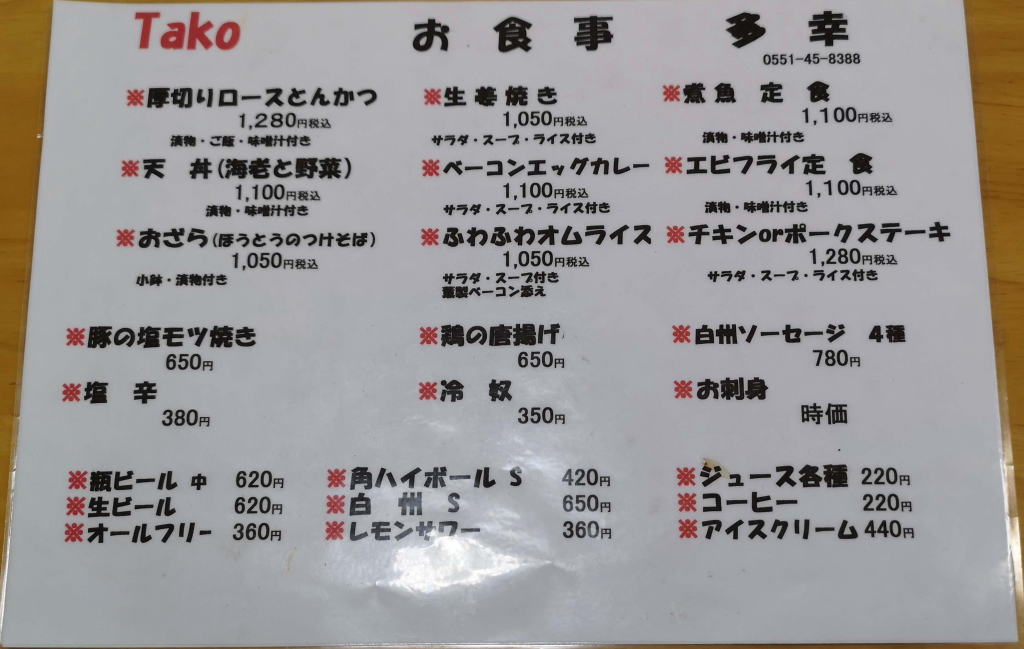 Tako お食事 多幸
0551-45-8388
※厚切りロースとんかつ
1,280円税込
漬物・ご飯・味噌汁付き
※生姜焼き
1,050円税込
サラダ・スープ・ライス付き
※煮魚 定 食
1,100円税込
漬物・味噌汁付き
※天 丼(海老と野菜)
1,100円税込
漬物・味噌汁付き
※ベーコンエッグカレー
1,100円税込
サラダ・スープ・ライス付き
※エビフライ定 食
1,100円税込
漬物・味噌汁付き
※おざら(ほうとうのつけそば)
1,050円税込
小鉢・漬物付き
※ふわふわオムライス
1,050円税込
サラダ・スープ付き
薫製ベーコン添え
※チキンorポークステーキ
1,280円税込
サラダ・スープ・ライス付き
※豚の塩モツ焼き
650円
※鶏の唐揚げ
650円
※白州ソーセージ 4種
780円
※塩 辛
380円
※冷 奴
350円
※お刺身
時価
※瓶ビール 中 620円
※生ビール 620円
※オールフリー 360円
※角ハイボール S 420円
※白 州 S 650円
※レモンサワー 360円
※ジュース各種 220円
※コーヒー 220円
※アイスクリーム 440円